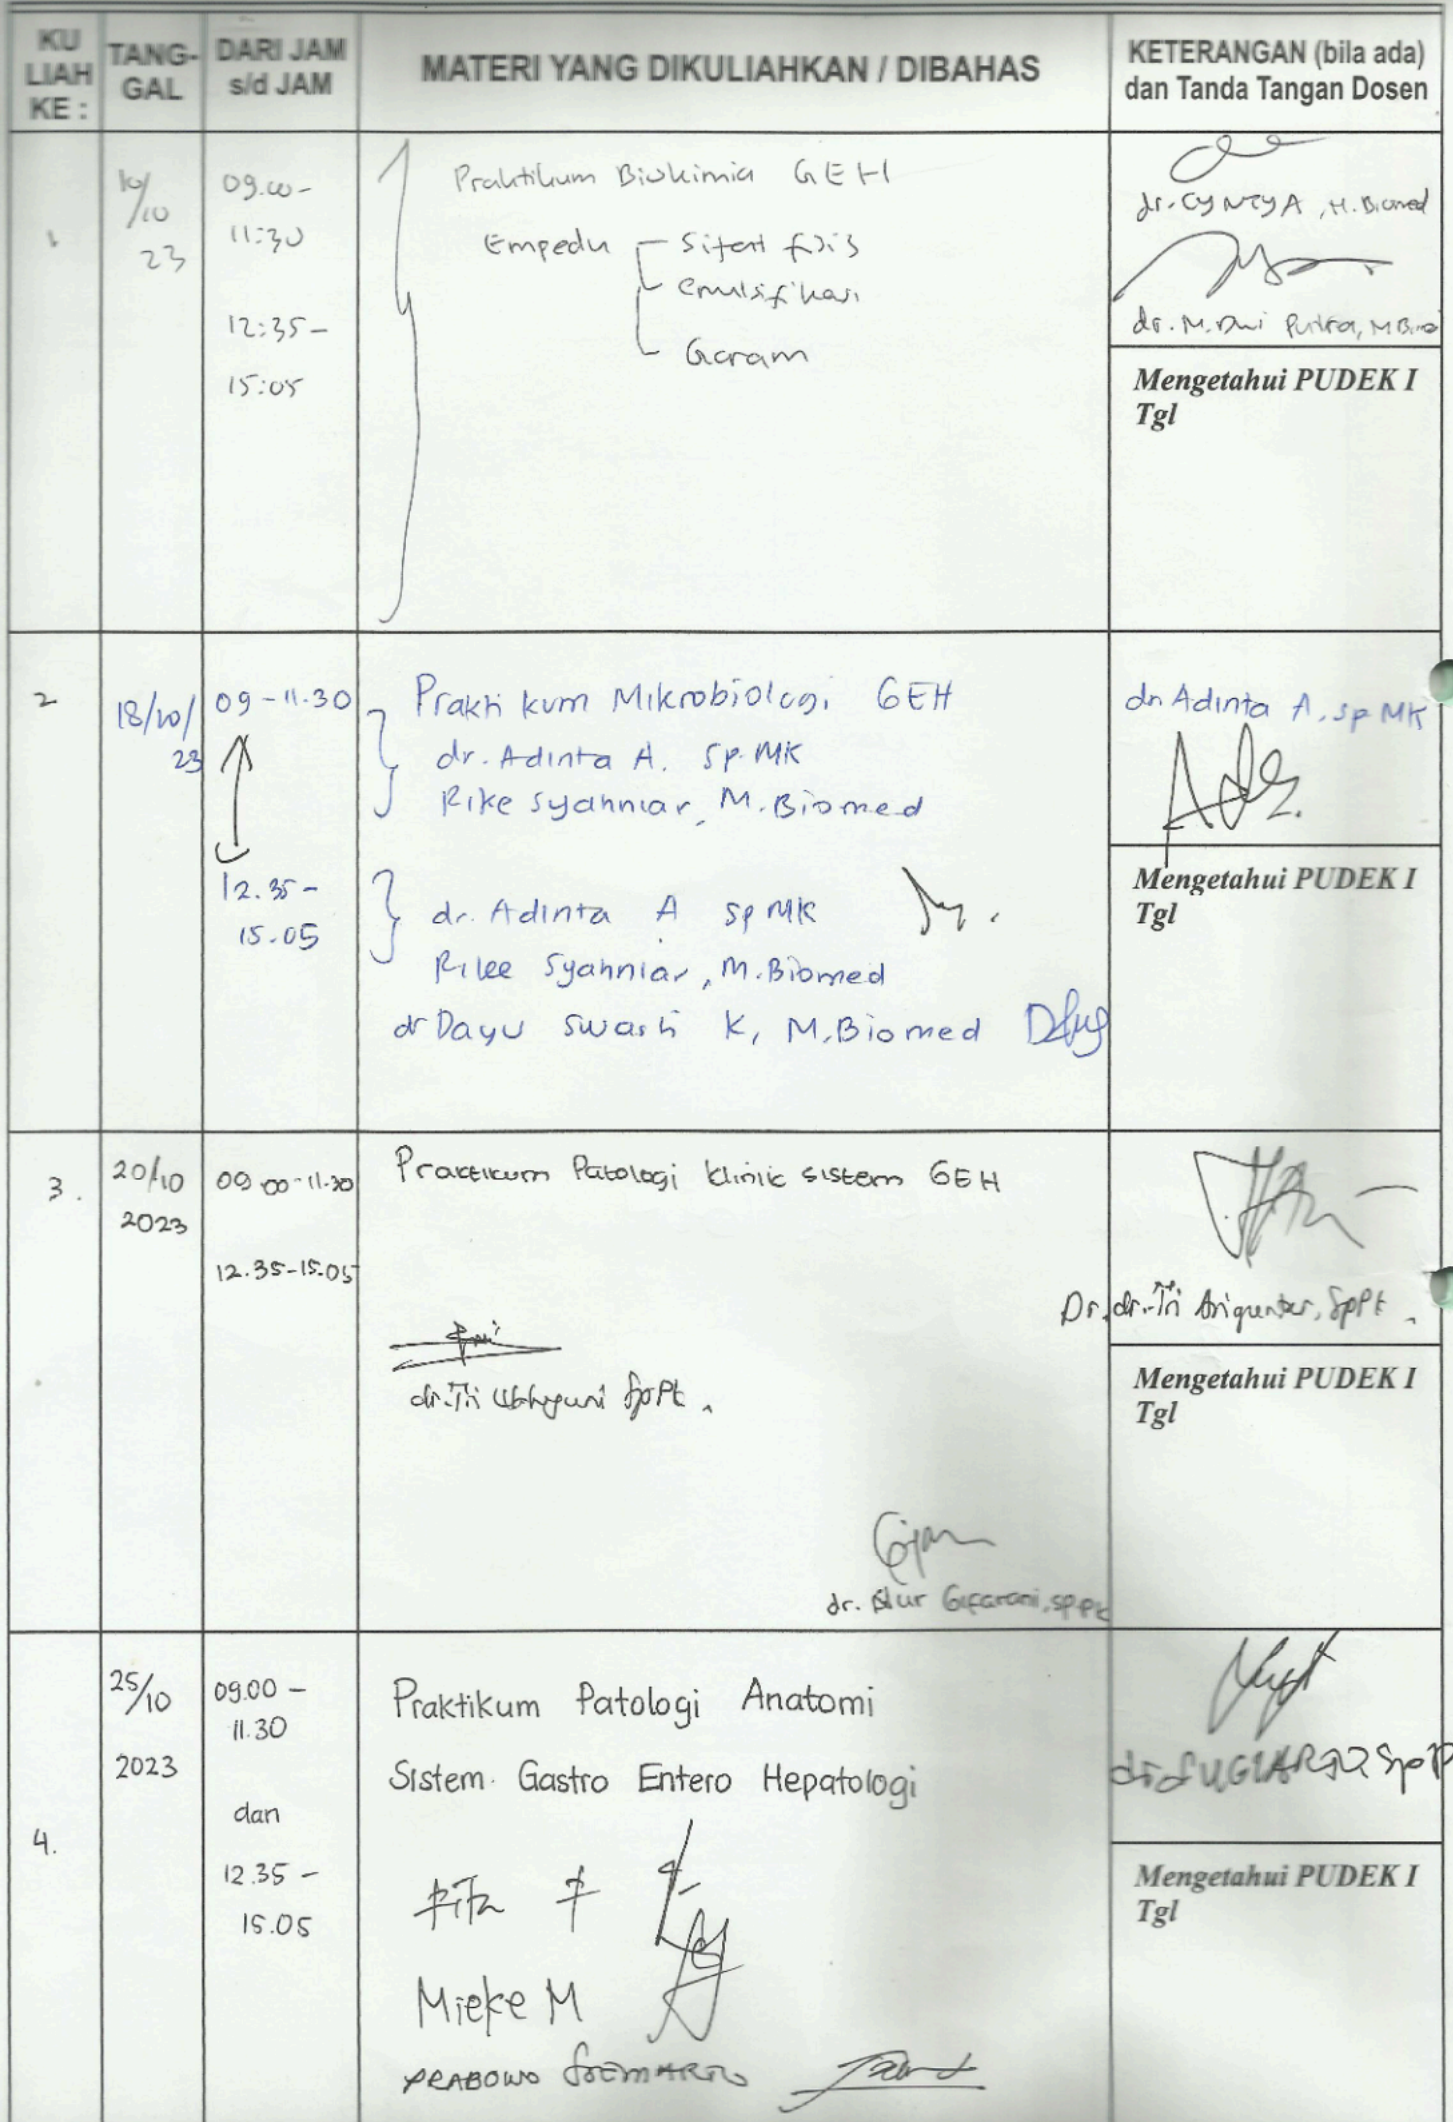 KU
LIAH
KE :
TANG-
GAL
DARI JAM
s/d JAM
MATERI YANG DIKULIAHKAN / DIBAHAS
KETERANGAN (bila ada)
dan Tanda Tangan Dosen
1
10/
10
23
09.00 -
11:30
12:35 -
15:05
Praktikum Biokimia GEH
Empedu
Sifat fisis
emulsifikasi
Garam
dr. CYNTYA, M. Biomed
dr. M. Dwi Putra, M Bio
Mengetahui PUDEK I
Tgl
2
18/10/
23
09 - 11.30
12.35 -
15.05
Praktikum Mikrobiologi GEH
dr. Adinta A. Sp. MK
Rike Syahniar, M. Biomed
dr. Adinta A Sp MK
Rike Syahniar, M. Biomed
dr Dayu Swasti K, M. Biomed
dr. Adinta A, Sp MK
Mengetahui PUDEK I
Tgl
3.
20/10
2023
09.00 - 11.30
12.35 - 15.05
Praktikum Patologi Klinik sistem GEH
dr. Tri SpPK
dr. Nur Gifarani, Sp.PK
Dr. dr. Tri SpPK
Mengetahui PUDEK I
Tgl
4.
25/10
2023
09.00 -
11.30
dan
12.35 -
15.05
Praktikum Patologi Anatomi
Sistem Gastro Entero Hepatologi
Mieke M
PRABOWO SOEMARTO
dr. SUGIARTO SpP
Mengetahui PUDEK I
Tgl